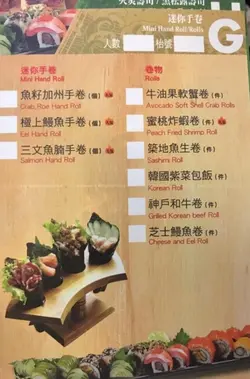 火炙壽司 / 黑松露壽司
迷你手卷
Mini Hand Roll/Rolls
人數 枱號
G
迷你手卷
Mini Hand Roll
魚籽加州手卷 (個)
Crab Roe Hand Roll
極上鰻魚手卷 (個)
Eel Hand Roll
三文魚腩手卷 (個)
Salmon Hand Roll
卷物
Rolls
牛油果軟蟹卷 (件)
Avocado Soft Shell Crab Rolls
蜜桃炸蝦卷 (件)
Peach Fried Shrimp Roll
築地魚生卷 (件)
Sashimi Roll
韓國紫菜包飯 (件)
Korean Roll
神戶和牛卷 (件)
Grilled Korean beef Roll
芝士鰻魚卷 (件)
Cheese and Eel Roll